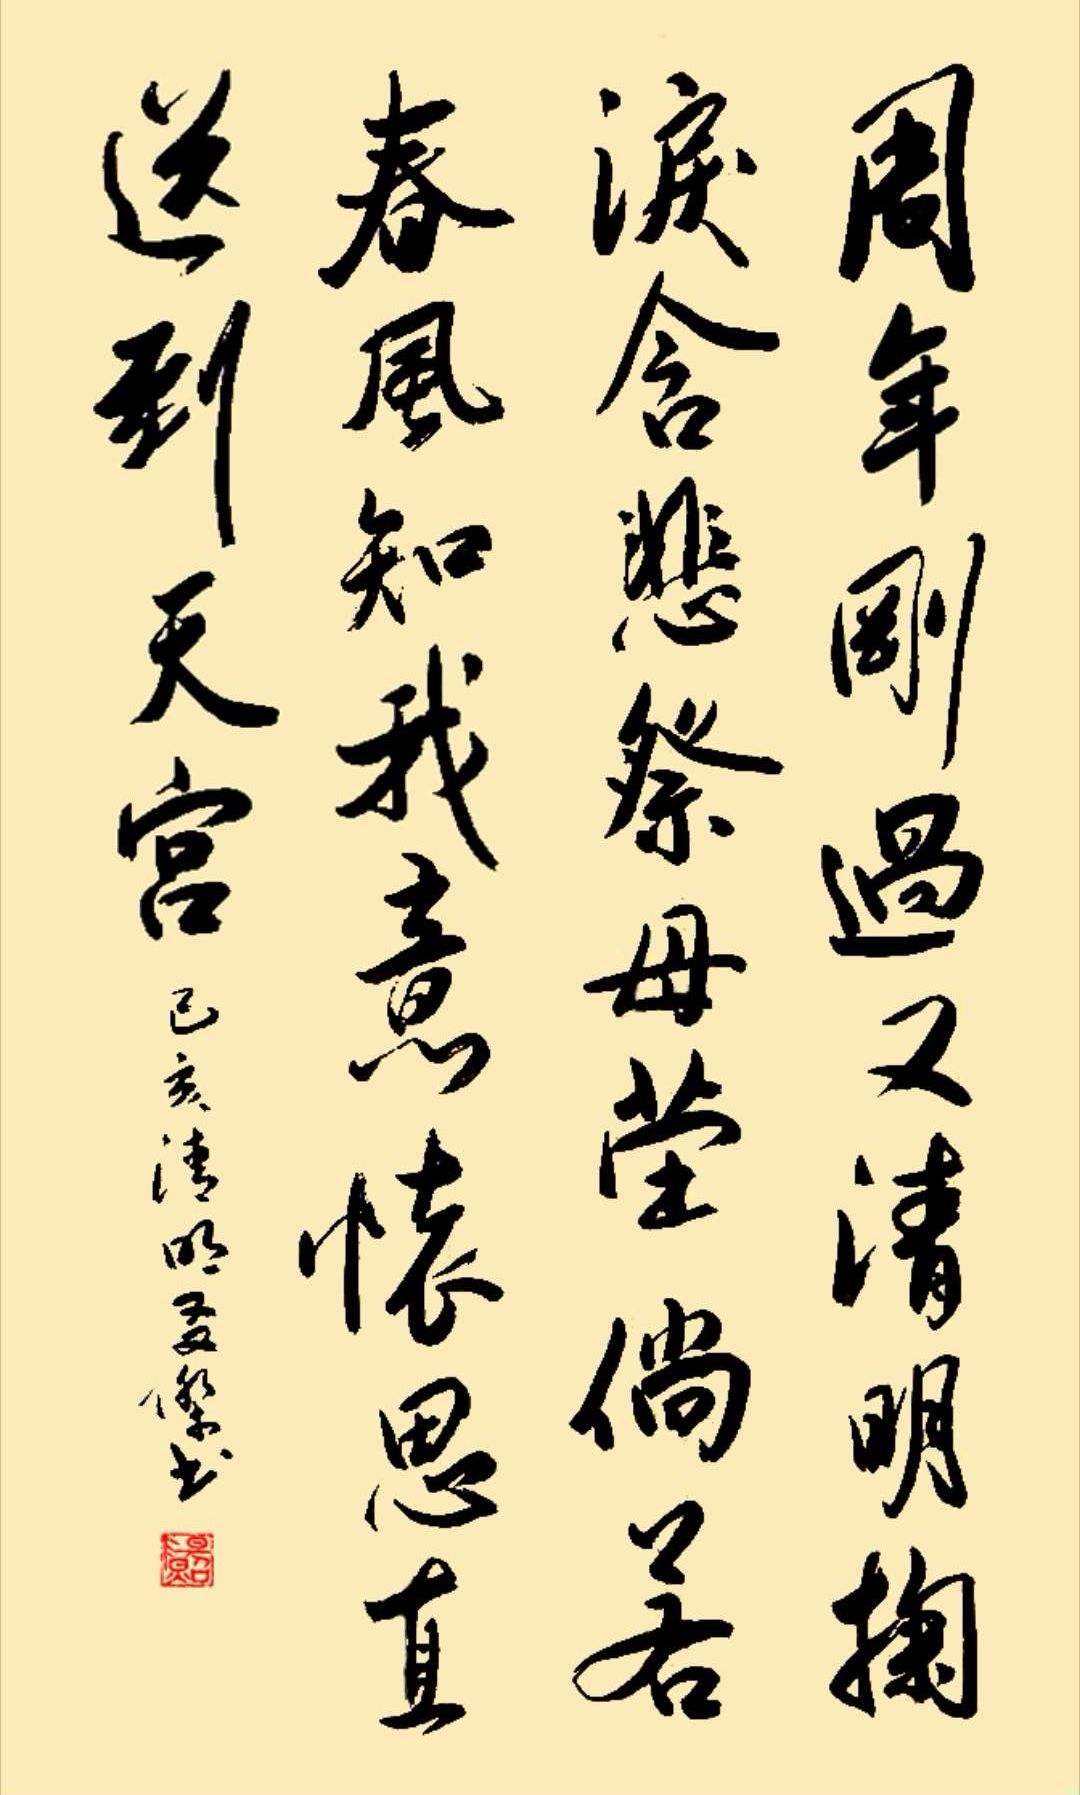 周年剛過又清明掬
淚含悲祭母茔倘若
春風知我意懷思直
送到天宮
己亥清明友傑书